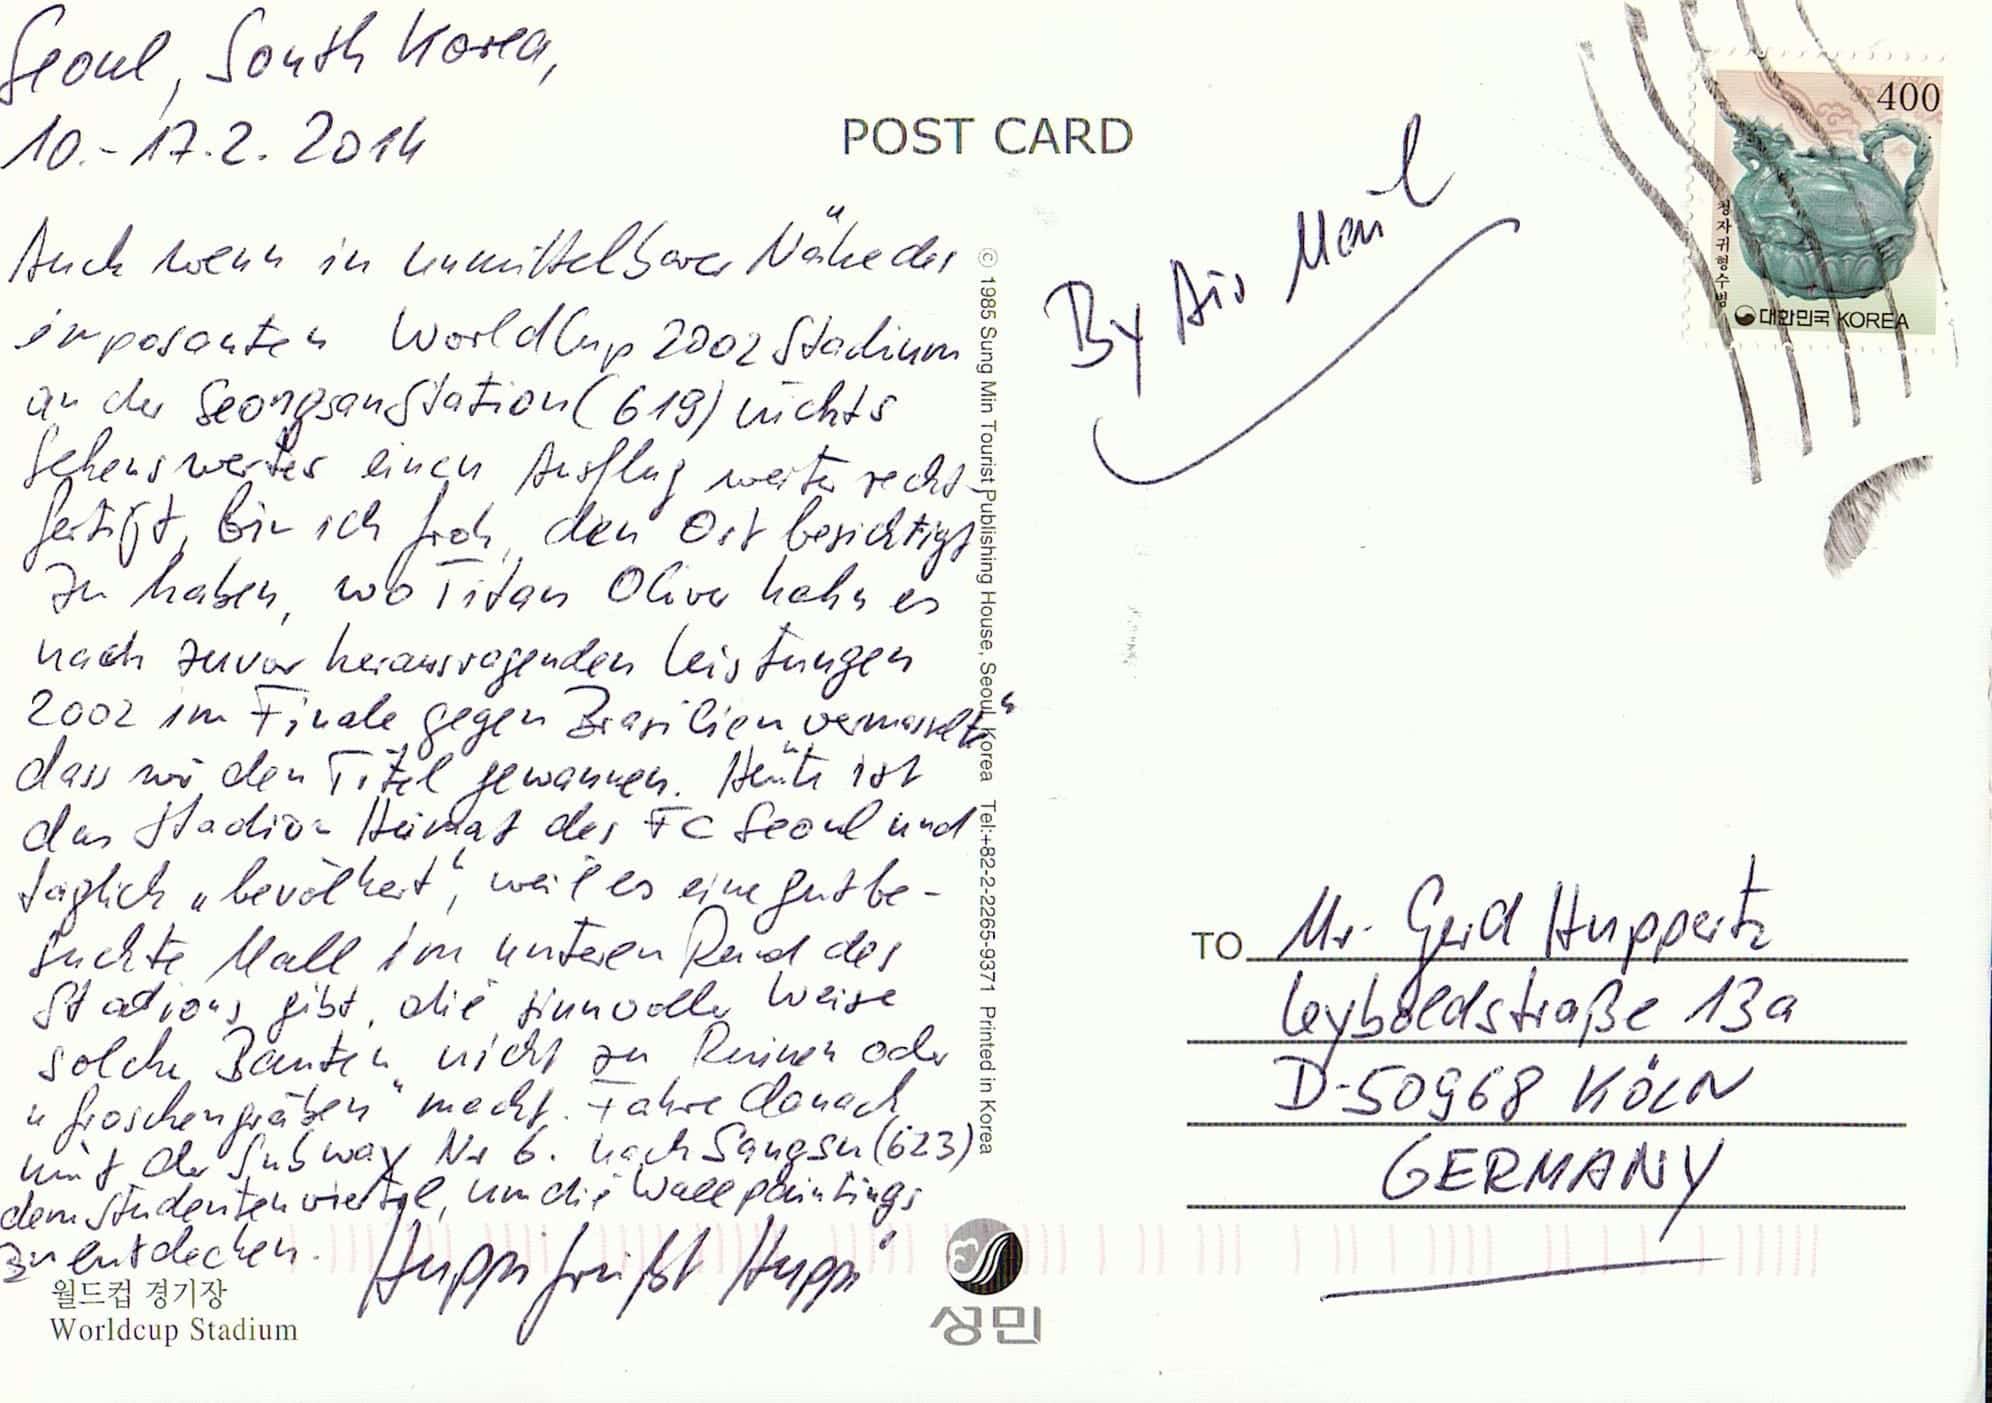 Seoul, South Korea,
10.-17.2. 2014
Auch wenn in unmittelbarer Nähe des
imposanten WorldCup 2002 Stadium
an der Seongsan Station (619) nichts
Sehenswertes einen Ausflug weiter recht-
fertigt, bin ich froh, den Ort besichtigt
zu haben, wo Titan Oliver Kahn es
nach zuvor herausragenden Leistungen
2002 im Finale gegen Brasilien vermasselte,
dass wir den Titel gewannen. Heute ist
das Stadion Heimat des FC Seoul und
täglich „bevölkert“, weil es eine gut be-
suchte Mall im unteren Rund des
Stadions gibt, die sinnvoller Weise
solche Bauten nicht zu Ruinen oder
„Groschengräben“ macht. Fahre danach
mit der Subway Nr 6. nach Sangsu (623)
dem Studentenviertel, um die Wallpaintings
zu entdecken. Huppi grüßt Huppi
월드컵 경기장
Worldcup Stadium
POST CARD
© 1985 Sung Min Tourist Publishing House, Seoul Korea Tel:+82-2-2265-9371 Printed in Korea
성민
By Air Mail
400
청자귀형수병
대한민국 KOREA
TO Mr. Gerd Huppertz
Leyboldstraße 13a
D-50968 KÖLN
GERMANY